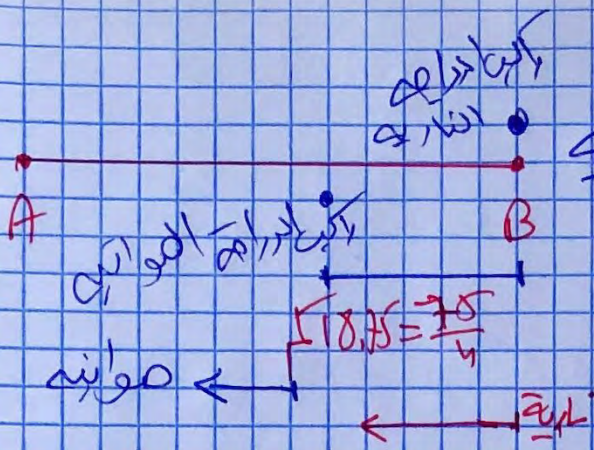 راكب الدراجة
النارية
A
B
راكب الدراجة الهوائية
18,75 = 75/4
هوائية